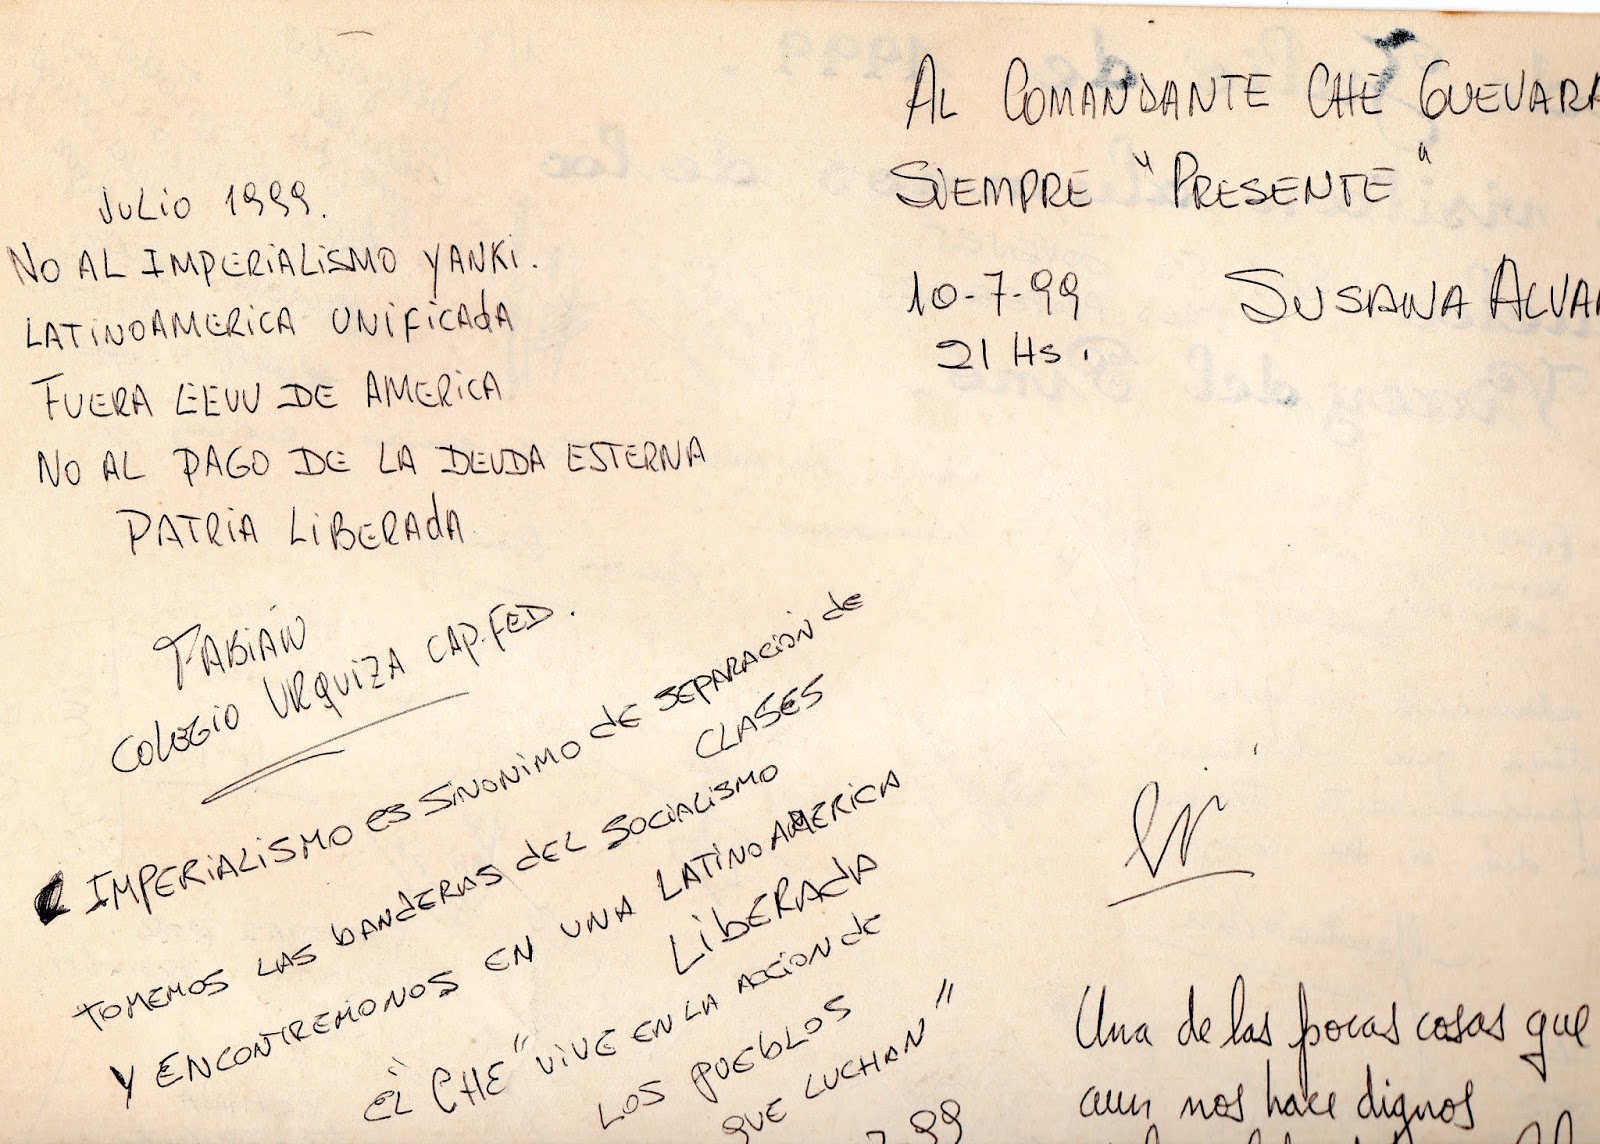 JULIO 1999.
NO AL IMPERIALISMO YANKI.
LATINOAMERICA UNIFICADA
FUERA EEUU DE AMERICA
NO AL PAGO DE LA DEUDA ESTERNA
PATRIA LIBERADA
FABIÁN
COLEGIO URQUIZA CAP.FED.
IMPERIALISMO ES SINONIMO DE SEPARACION DE
CLASES
TOMEMOS LAS BANDERAS DEL SOCIALISMO
Y ENCONTREMONOS EN UNA LATINOAMERICA
LIBERADA
EL "CHE" VIVE EN LA ACCION DE
LOS PUEBLOS
QUE LUCHAN"
7.99
AL COMANDANTE CHE GUEVARA
SIEMPRE "PRESENTE"
10-7-99 SUSANA ALVA
21 Hs.
Una de las pocas cosas que
aun nos hace dignos